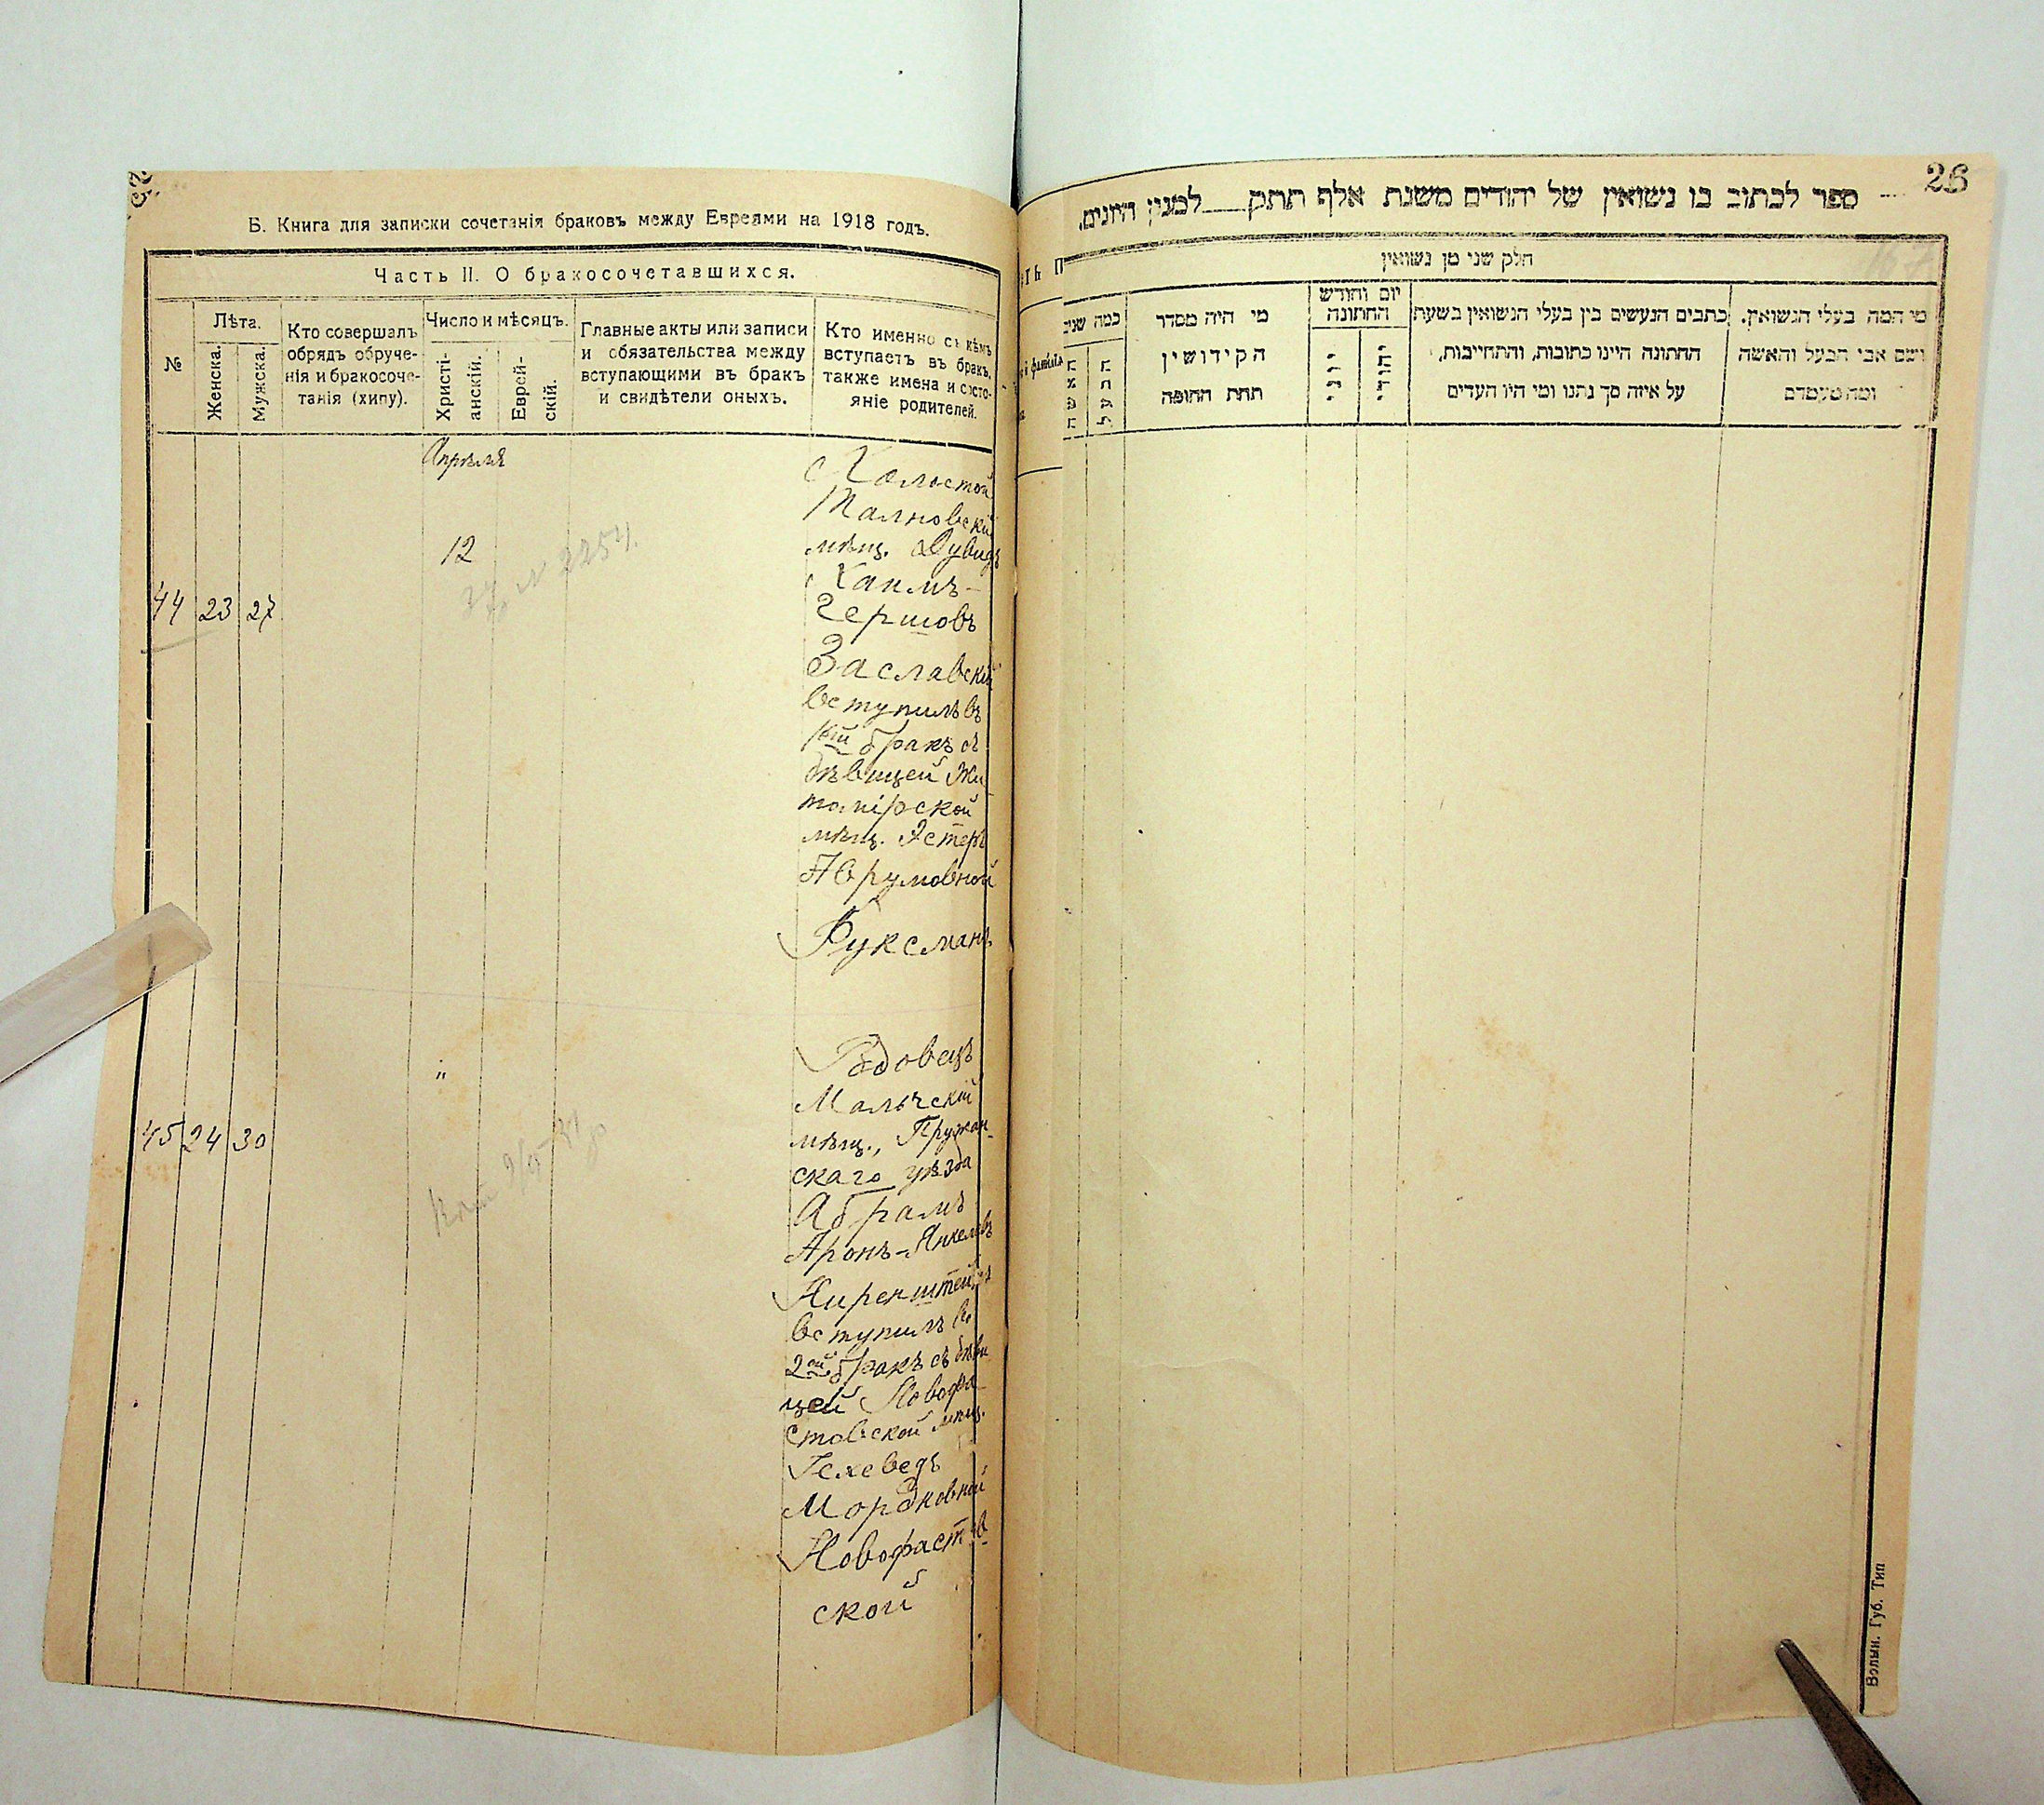 Б. Книга для записки сочетанія браковъ между Евреями на 1918 годъ.
Часть II. О бракосочетавшихся.
№
Лѣта.
Женска.
Мужска.
Кто совершалъ
обрядъ обруче-
нія и бракосоче-
танія (хипу).
Число и мѣсяцъ.
Христі-
анскій.
Еврей-
скій.
Главные акты или записи
и обязательства между
вступающими въ бракъ
и свидѣтели оныхъ.
Кто именно съ кѣмъ
вступаетъ въ бракъ,
также имена и состо-
яніе родителей.
Апрѣля
12
44 23 27
Холостой
Талновскій
мѣщ. Дувидъ
Хаимъ-
Гершовъ
Заславскій
вступилъ въ
1ый бракъ съ
дѣвицей Жи-
томірской
мѣщ. Эстеръ
Аврумовной
Фуксманъ
"
45 24 30
Вдовецъ
Мальчскій
мѣщ., Пружан-
скаго уѣзда
Абрамъ
Аронъ-Янкелевъ
Ниренштейнъ
вступилъ во
2ой бракъ съ дѣви
цей Новофа-
стовской мѣщ.
Іехеведъ
Мордковной
Новофастов-
ской
26
ספר לכתוב בו נשואין של יהודים משנת אלף תתק___למנין היונים.
חלק שני מן נשואין
מי המה בעלי הנשואין.
ושם אבי הבעל והאשה
ומה מעמדם
כתבים הנעשים בין בעלי הנשואין בשעת
החתונה היינו כתובות, והתחייבות,
על איזה סך נתנו ומי היו העדים
יום וחודש
החתונה
יהודי
יוני
מי היה מסדר
הקידושין
תחת החופה
כמה שנים
הבעל
האשה
Волын. Губ. Тип